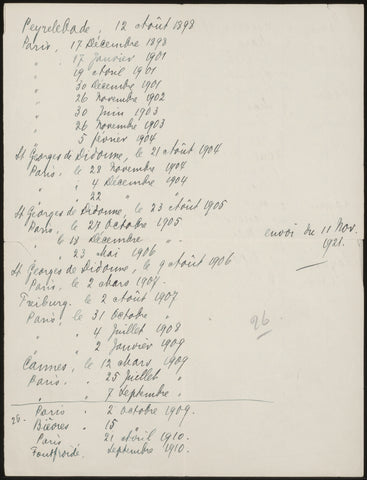 Peyrelebade, 12 Août 1898
Paris, 17 Décembre 1898
" 17 Janvier 1901
" 19 Avril 1901
" 30 Décembre 1901
" 26 Novembre 1902
" 30 Juin 1903
" 26 Novembre 1903
" 5 février 1904
St Georges de Didonne, le 21 Août 1904
Paris, le 28 Novembre 1904
" " 4 Décembre 1904
" " 22 " "
St Georges de Didonne, le 23 Août 1905
Paris, le 27 Octobre 1905
" le 18 Décembre "
" " 23 Mai 1906
envoi du 11 Nov.
1921.
St Georges de Didonne, le 9 Août 1906
Paris, le 2 Mars 1907.
Freiburg, le 2 Août 1907
Paris, le 31 Octobre "
" " 4 Juillet 1908
" " 2 Janvier 1909
26
Cannes, le 12 Mars 1909
Paris, " 25 Juillet "
" " 7 Septembre "
Paris " 2 Octobre 1909.
Bièvres " 15
Paris 21 Avril 1910.
Fontfroide. Septembre 1910.